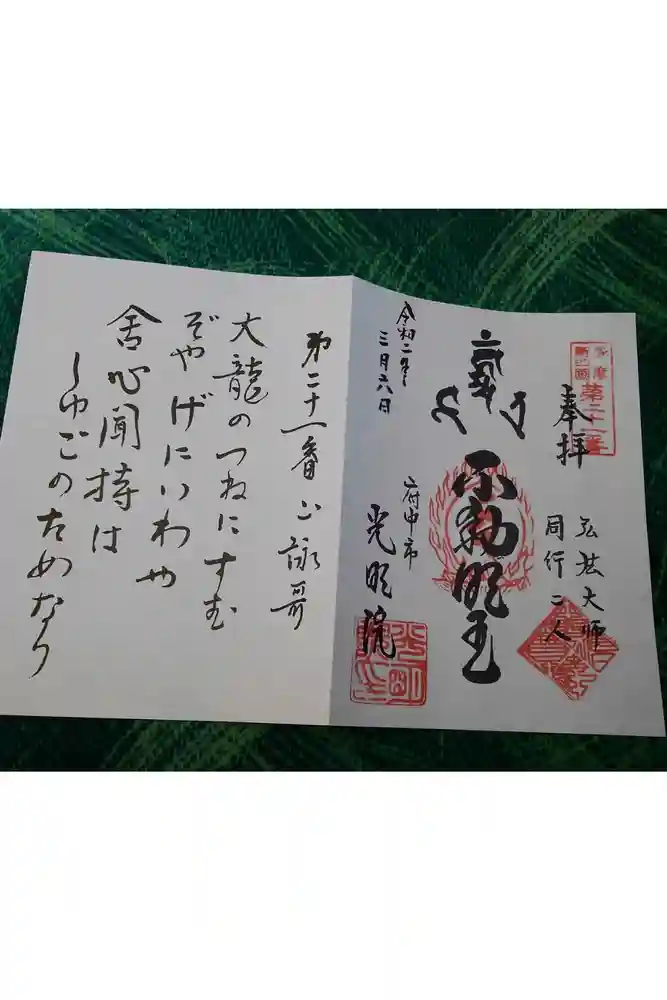 多摩
四国
第二十一番
奉拝
弘法大師
同行二人
不動明王
令和二年
三月六日
府中市
光明院
第二十一番 御詠哥
大龍のつねにすむ
ぞやげにいわや
舎心聞持は
しゆごのためなり